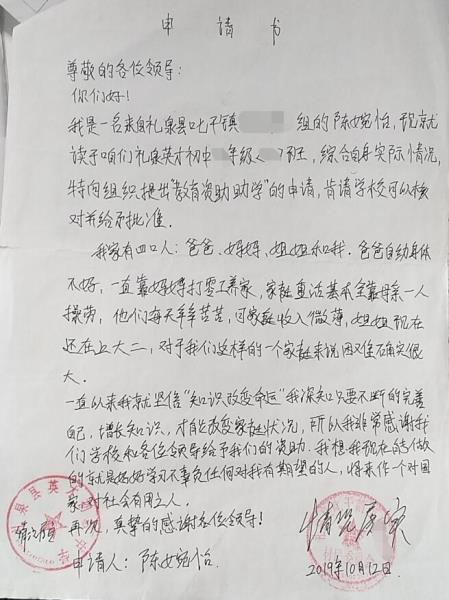 申请书
尊敬的各位领导:
你们好!
我是一名来自礼泉县叱干镇 组的陈婉怡,现就
读于咱们礼泉英才初中 年级 班,综合自身实际情况,
特向组织提出“教育资助助学”的申请,肯请学校可以核
对并给予批准.
我家有四口人:爸爸、妈妈、姐姐和我.爸爸自幼身体
不好,一直靠妈妈打零工养家,家庭生活基本全靠母亲一人
操劳,他们每天辛辛苦苦,可家庭收入微薄,姐姐现在
还在上大二,对于我们这样的一个家庭来说困难确实很
大.
一直以来我就坚信“知识改变命运”我深知只要不断的完善
自己,增长知识,才能改变家庭状况,所以我非常感谢我
们学校和各位领导给予我们的资助.我想我现在能做
的就是好好学习不辜负任何对我有期望的人,将来作一个对国
家,对社会有用之人.
再次,真挚的感谢各位领导!
情况属实
申请人:陈婉怡
2019年10月12日.